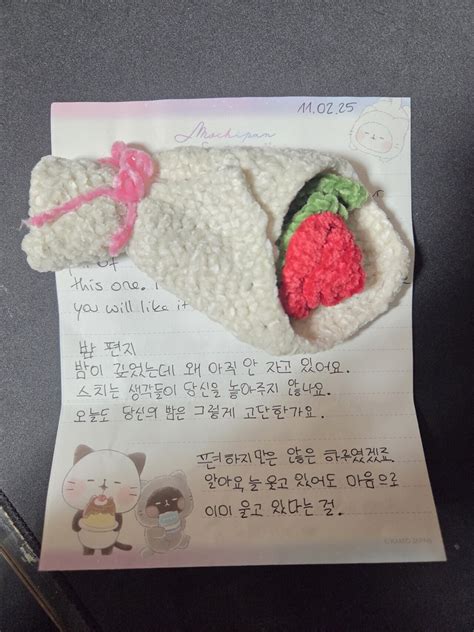 11.02.25
Mochipan
this one. I
you will like it
밤 편지
밤이 깊었는데 왜 아직 안 자고 있어요.
스치는 생각들이 당신을 놓아주지 않나요.
오늘도 당신의 밤은 그렇게 고단한가요.
편하지만은 않은 하루였겠죠
알아요 늘 웃고 있어도 마음으로
이미 울고 있다는 걸.
©KAMIO JAPAN